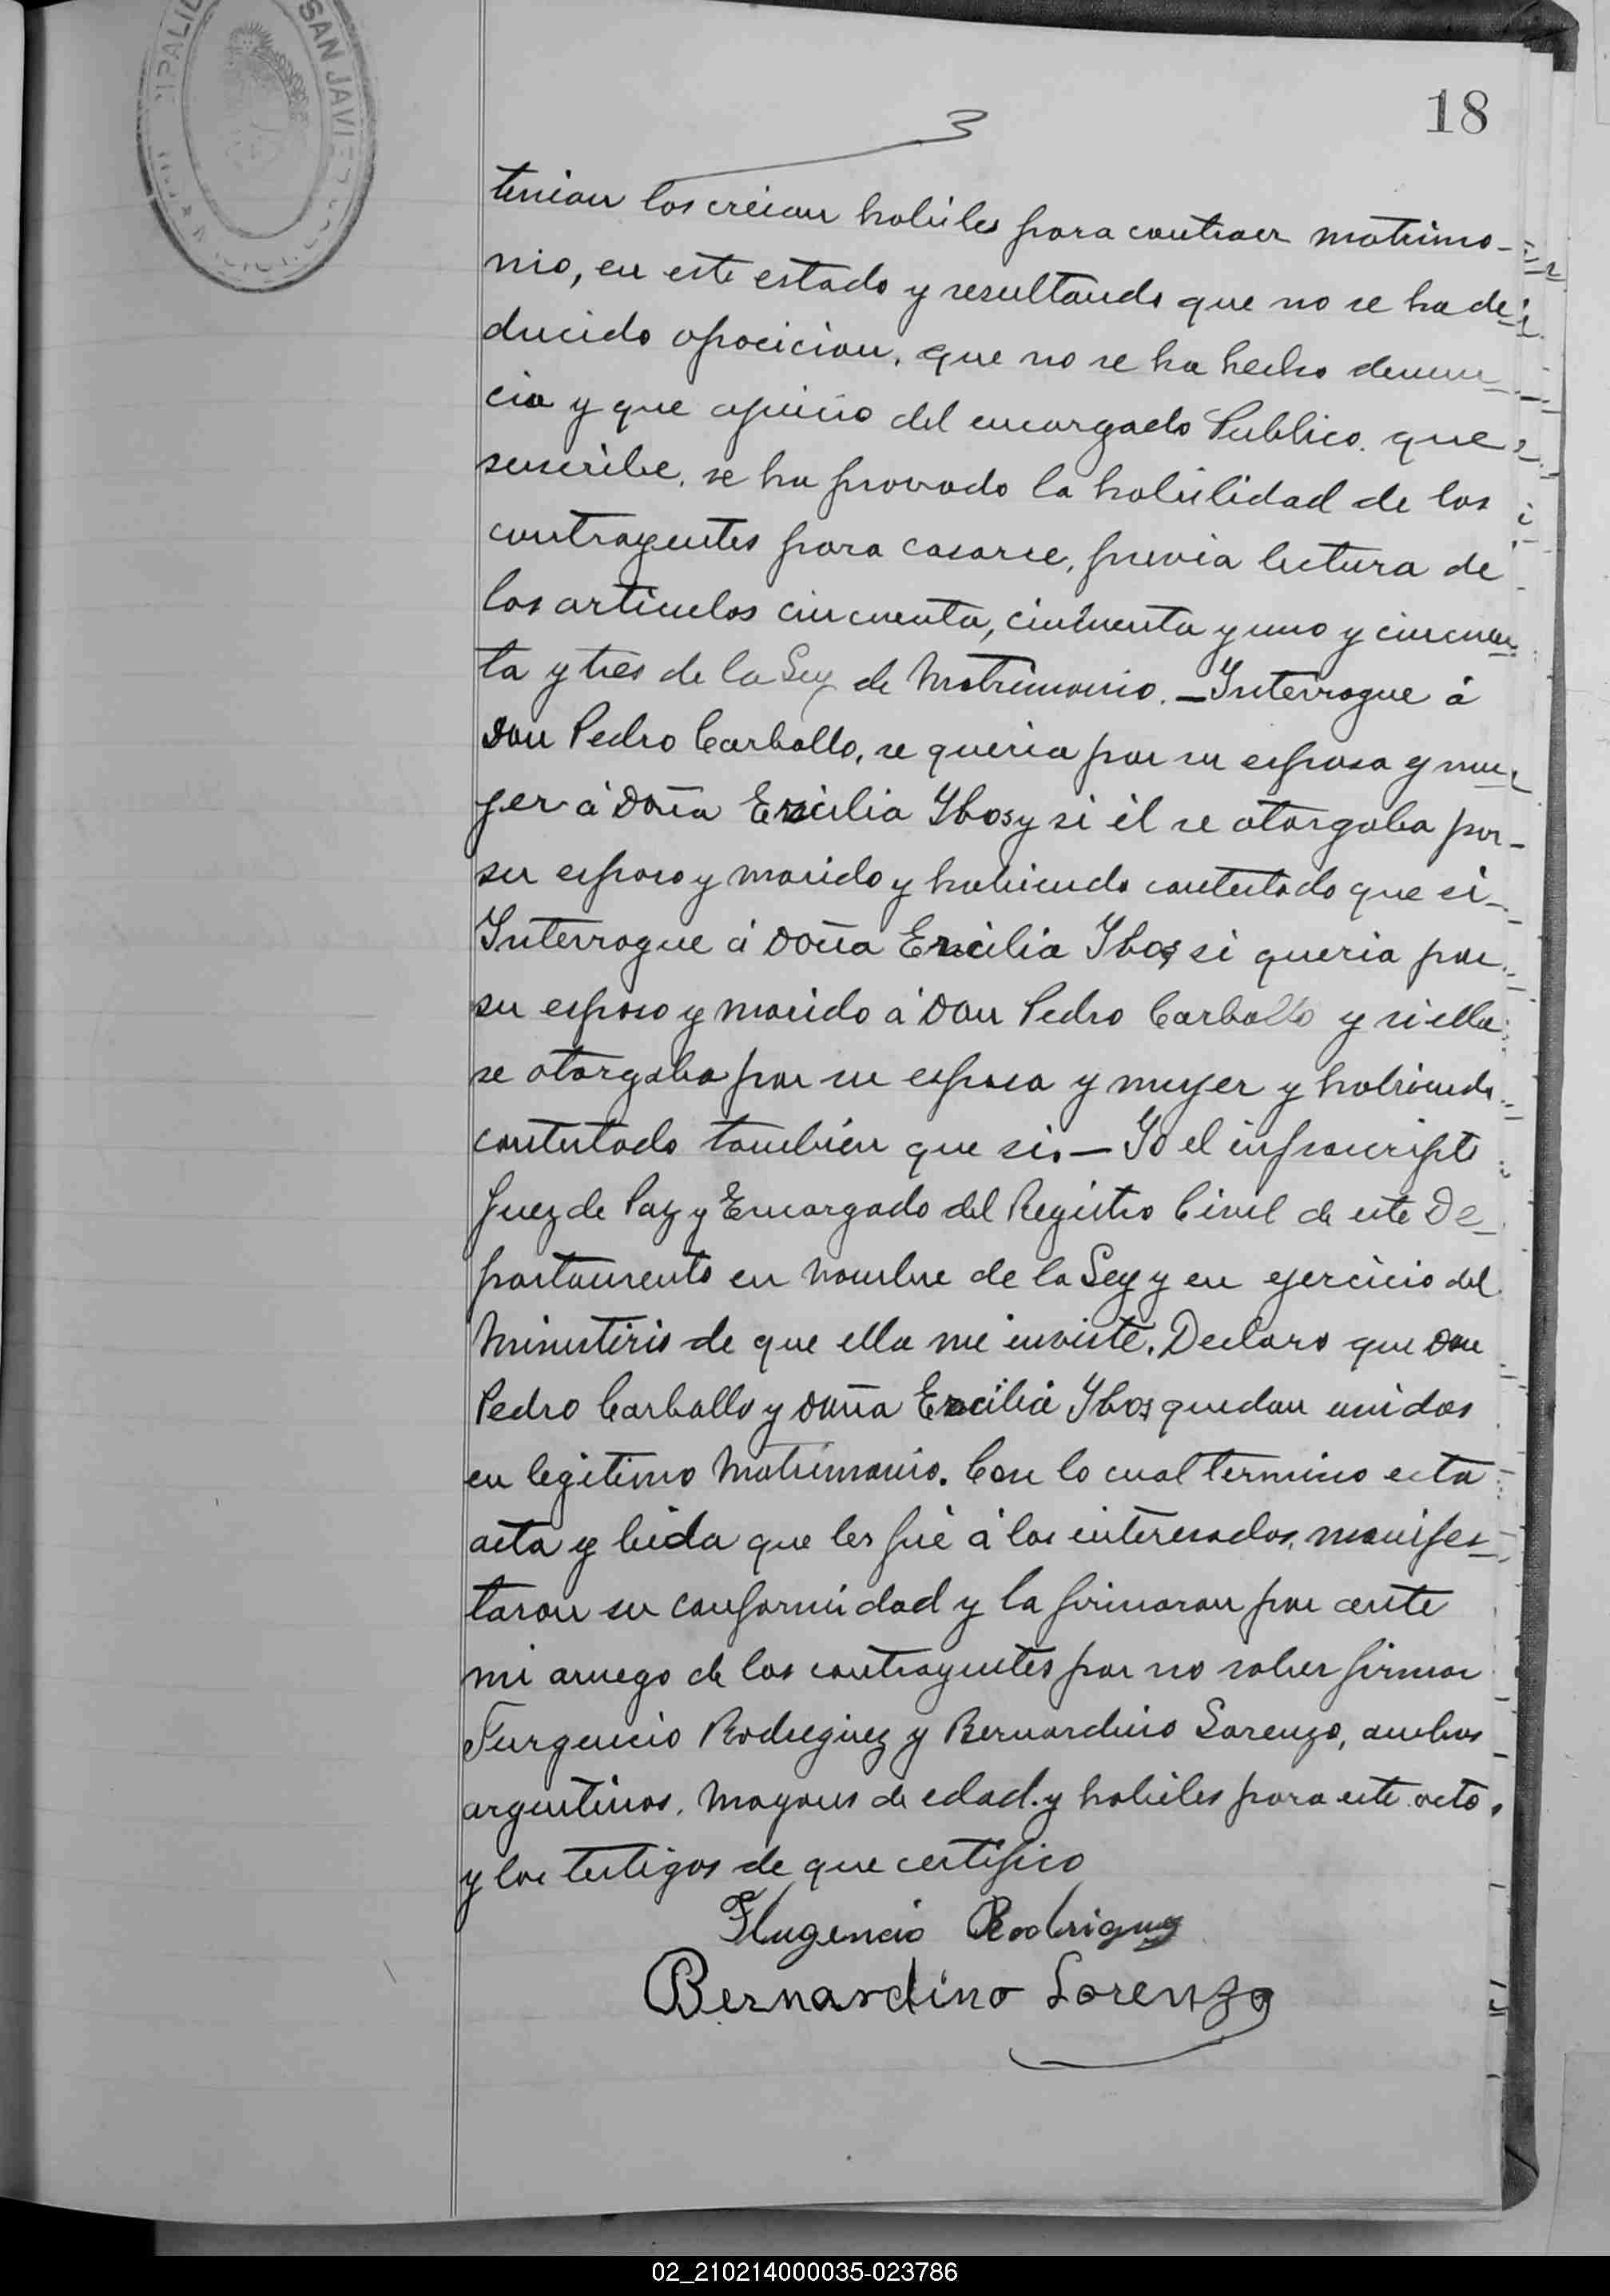 18
3
tenian los creian habiles para contraer matrimo-
nio, en este estado y resultando que no se ha de-
ducido oposicion, que no se ha hecho denun-
cia y que ajuicio del encargado Publico. que
suscribe, se ha provado la habilidad de los
contrayentes para casarse, previa lectura de
los articulos cincuenta, cincuenta y uno y cincuen-
ta y tres de la Ley de Matrimonio. – Interrogue á
Don Pedro Carballo, se queria por su esposa y mu-
jer á Doña Ercilia Ybos y si él se otorgaba por
su esposo y marido y habiendo contestado que si –
Interrogue á Doña Ercilia Ybos si queria por
su esposo y marido á Don Pedro Carballo y si ella
se otorgaba por su esposa y mujer y habiendo
contestado tambien que si. – Yo el infrascripto
Juez de Paz y Encargado del Registro Civil de este De-
partamento en nombre de la Ley y en ejercicio del
Ministerio de que ella me inviste. Declaro que Don
Pedro Carballo y Doña Ercilia Ybos quedan unidos
en legitimo Matrimonio. Con lo cual termino esta
acta y leida que les fué á los interesados, manifes-
taron su conformidad y la firmaron por ante
mi aruego de los contrayentes por no saber firmar
Furgencio Rodriguez y Bernardino Lorenzo, ambos
argentinos, Mayores de edad. y habiles para este acto
y los testigos de que certifico
Flugencio Rodriguez
Bernardino Lorenzo
SAN JAVIE
02_210214000035-023786